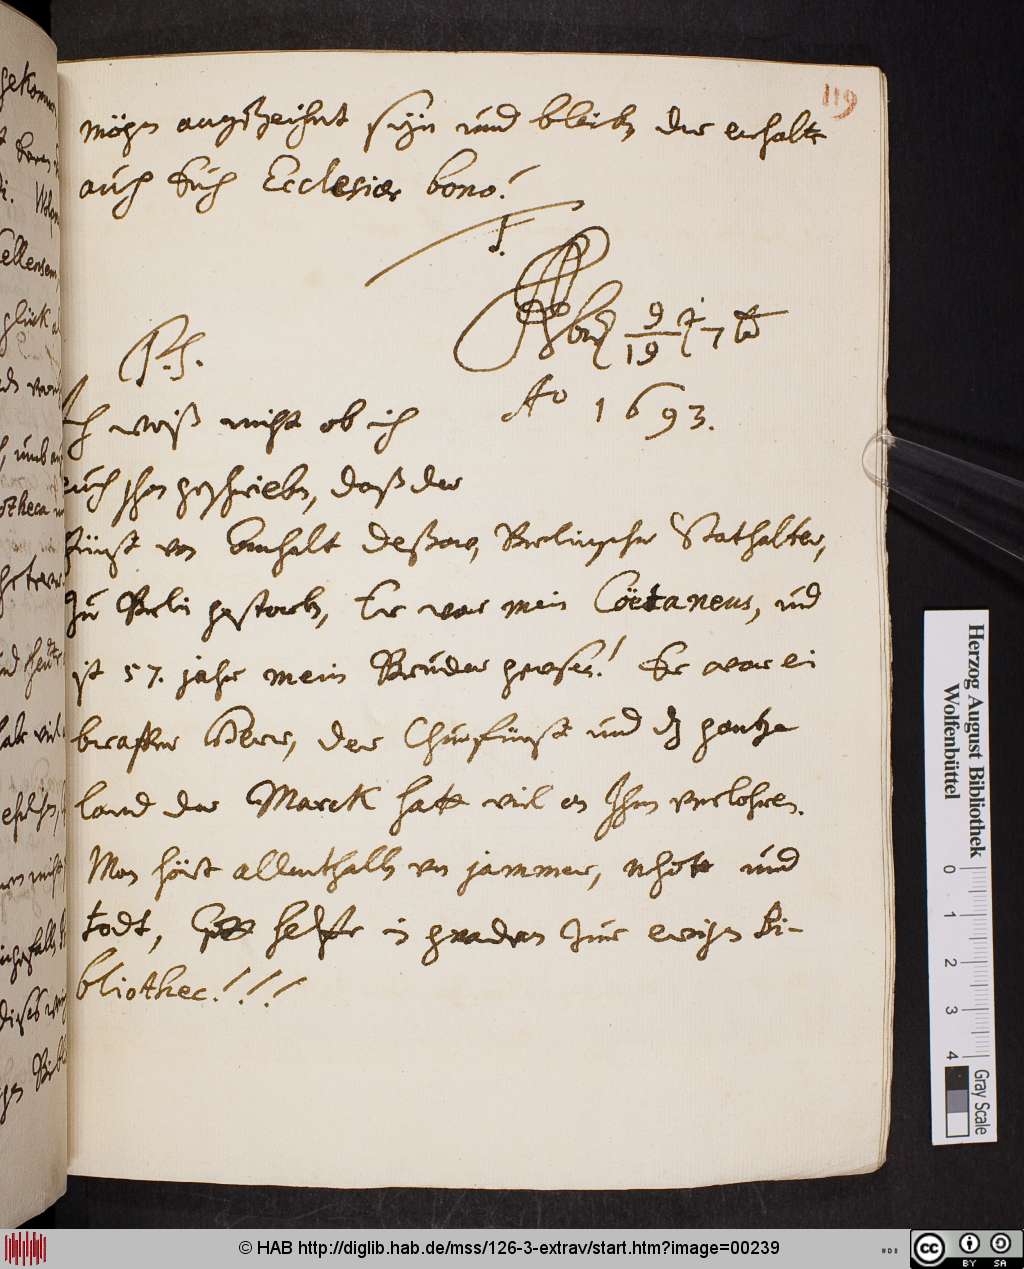 119
mögen augezeichnet seyn und bleiben der erhalte
auch Euch Ecclesiae bono!
9
19
7
P. S.
Ao 1693.
Ich weiß nicht ob ich
euch schon geschrieben, daß der
Fürst von Anhalt Deßaw, Berlinischer Stathalter,
Zu Berlin gestorben, Er war mein Coëtaneus, und
ist 57. jahr mein Bruder gewesen! Er war ein
braffer Herr, der Churfürst und dz gantze
land der Marck hatt viel an Ihm verlohren.
Man hört allenthalben von jammer, nhott und
todt, Gott helffe in gnaden zur ewigen Bi-
bliothec!!!
Herzog August Bibliothek
Wolfenbüttel
0 1 2 3 4
Gray Scale
© HAB http://diglib.hab.de/mss/126-3-extrav/start.htm?image=00239
cc BY SA